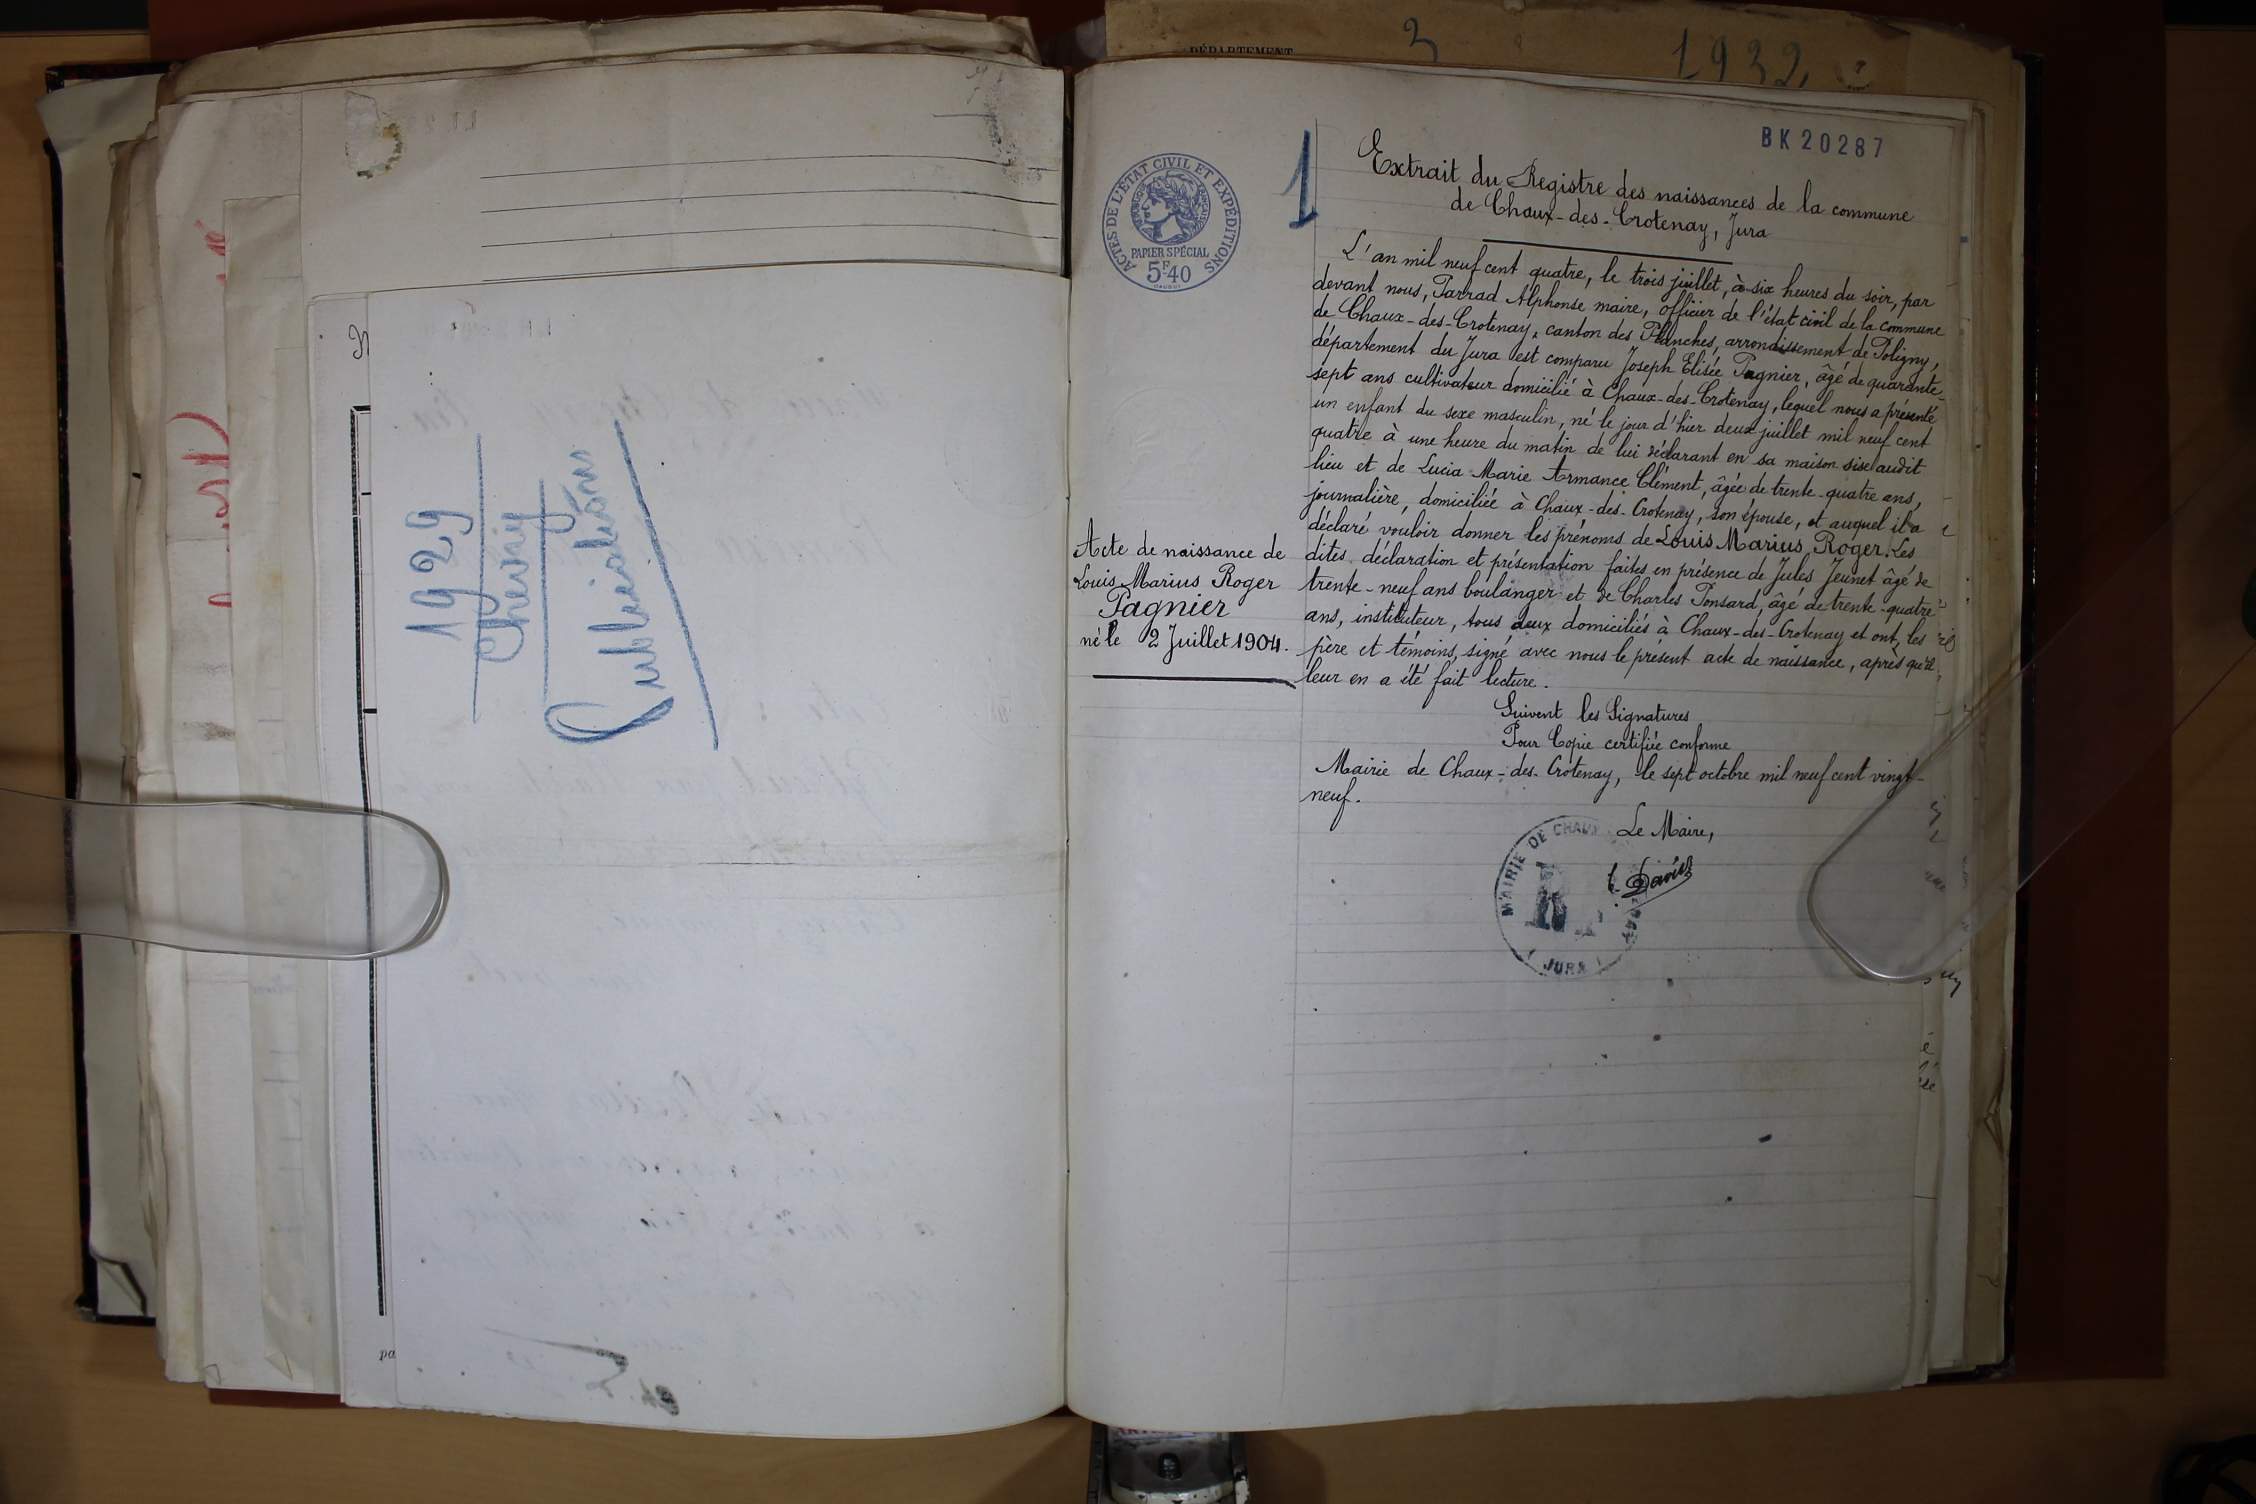 1929
Chevry
Publications
pa
DÉPARTEMENT
3
1932
BK 20287
ACTES DE L'ÉTAT CIVIL ET EXPÉDITIONS
RÉPUBLIQUE FRANÇAISE
PAPIER SPÉCIAL
5F40
1
Extrait du Registre des naissances de la commune
de Chaux-des-Crotenay, Jura
L'an mil neuf cent quatre, le trois juillet, à six heures du soir, par
devant nous, Parrad Alphonse maire, officier de l'état civil de la commune
de Chaux-des-Crotenay, canton des Planches, arrondissement de Poligny,
département du Jura est comparu Joseph Elisée Pagnier, âgé de quarante-
sept ans cultivateur domicilié à Chaux-des-Crotenay, lequel nous a présenté
un enfant du sexe masculin, né le jour d'hier deux juillet mil neuf cent
quatre à une heure du matin de lui déclarant en sa maison sise audit
lieu et de Lucia Marie Armance Clément, âgée de trente-quatre ans,
journalière, domiciliée à Chaux-des-Crotenay, son épouse, et auquel il a
déclaré vouloir donner les prénoms de Louis Marius Roger. Les
dites déclaration et présentation faites en présence de Jules Jeunet âgé de
trente-neuf ans boulanger et de Charles Ponsard, âgé de trente-quatre
ans, instituteur, tous deux domiciliés à Chaux-des-Crotenay et ont, les
père et témoins, signé avec nous le présent acte de naissance, après qu'il
leur en a été fait lecture.
Acte de naissance de
Louis Marius Roger
Pagnier
né le 2 Juillet 1904.
Suivent les Signatures
Pour Copie certifiée conforme
Mairie de Chaux-des-Crotenay, le sept octobre mil neuf cent vingt-
neuf.
Le Maire,
MAIRIE DE CHAUX
JURA